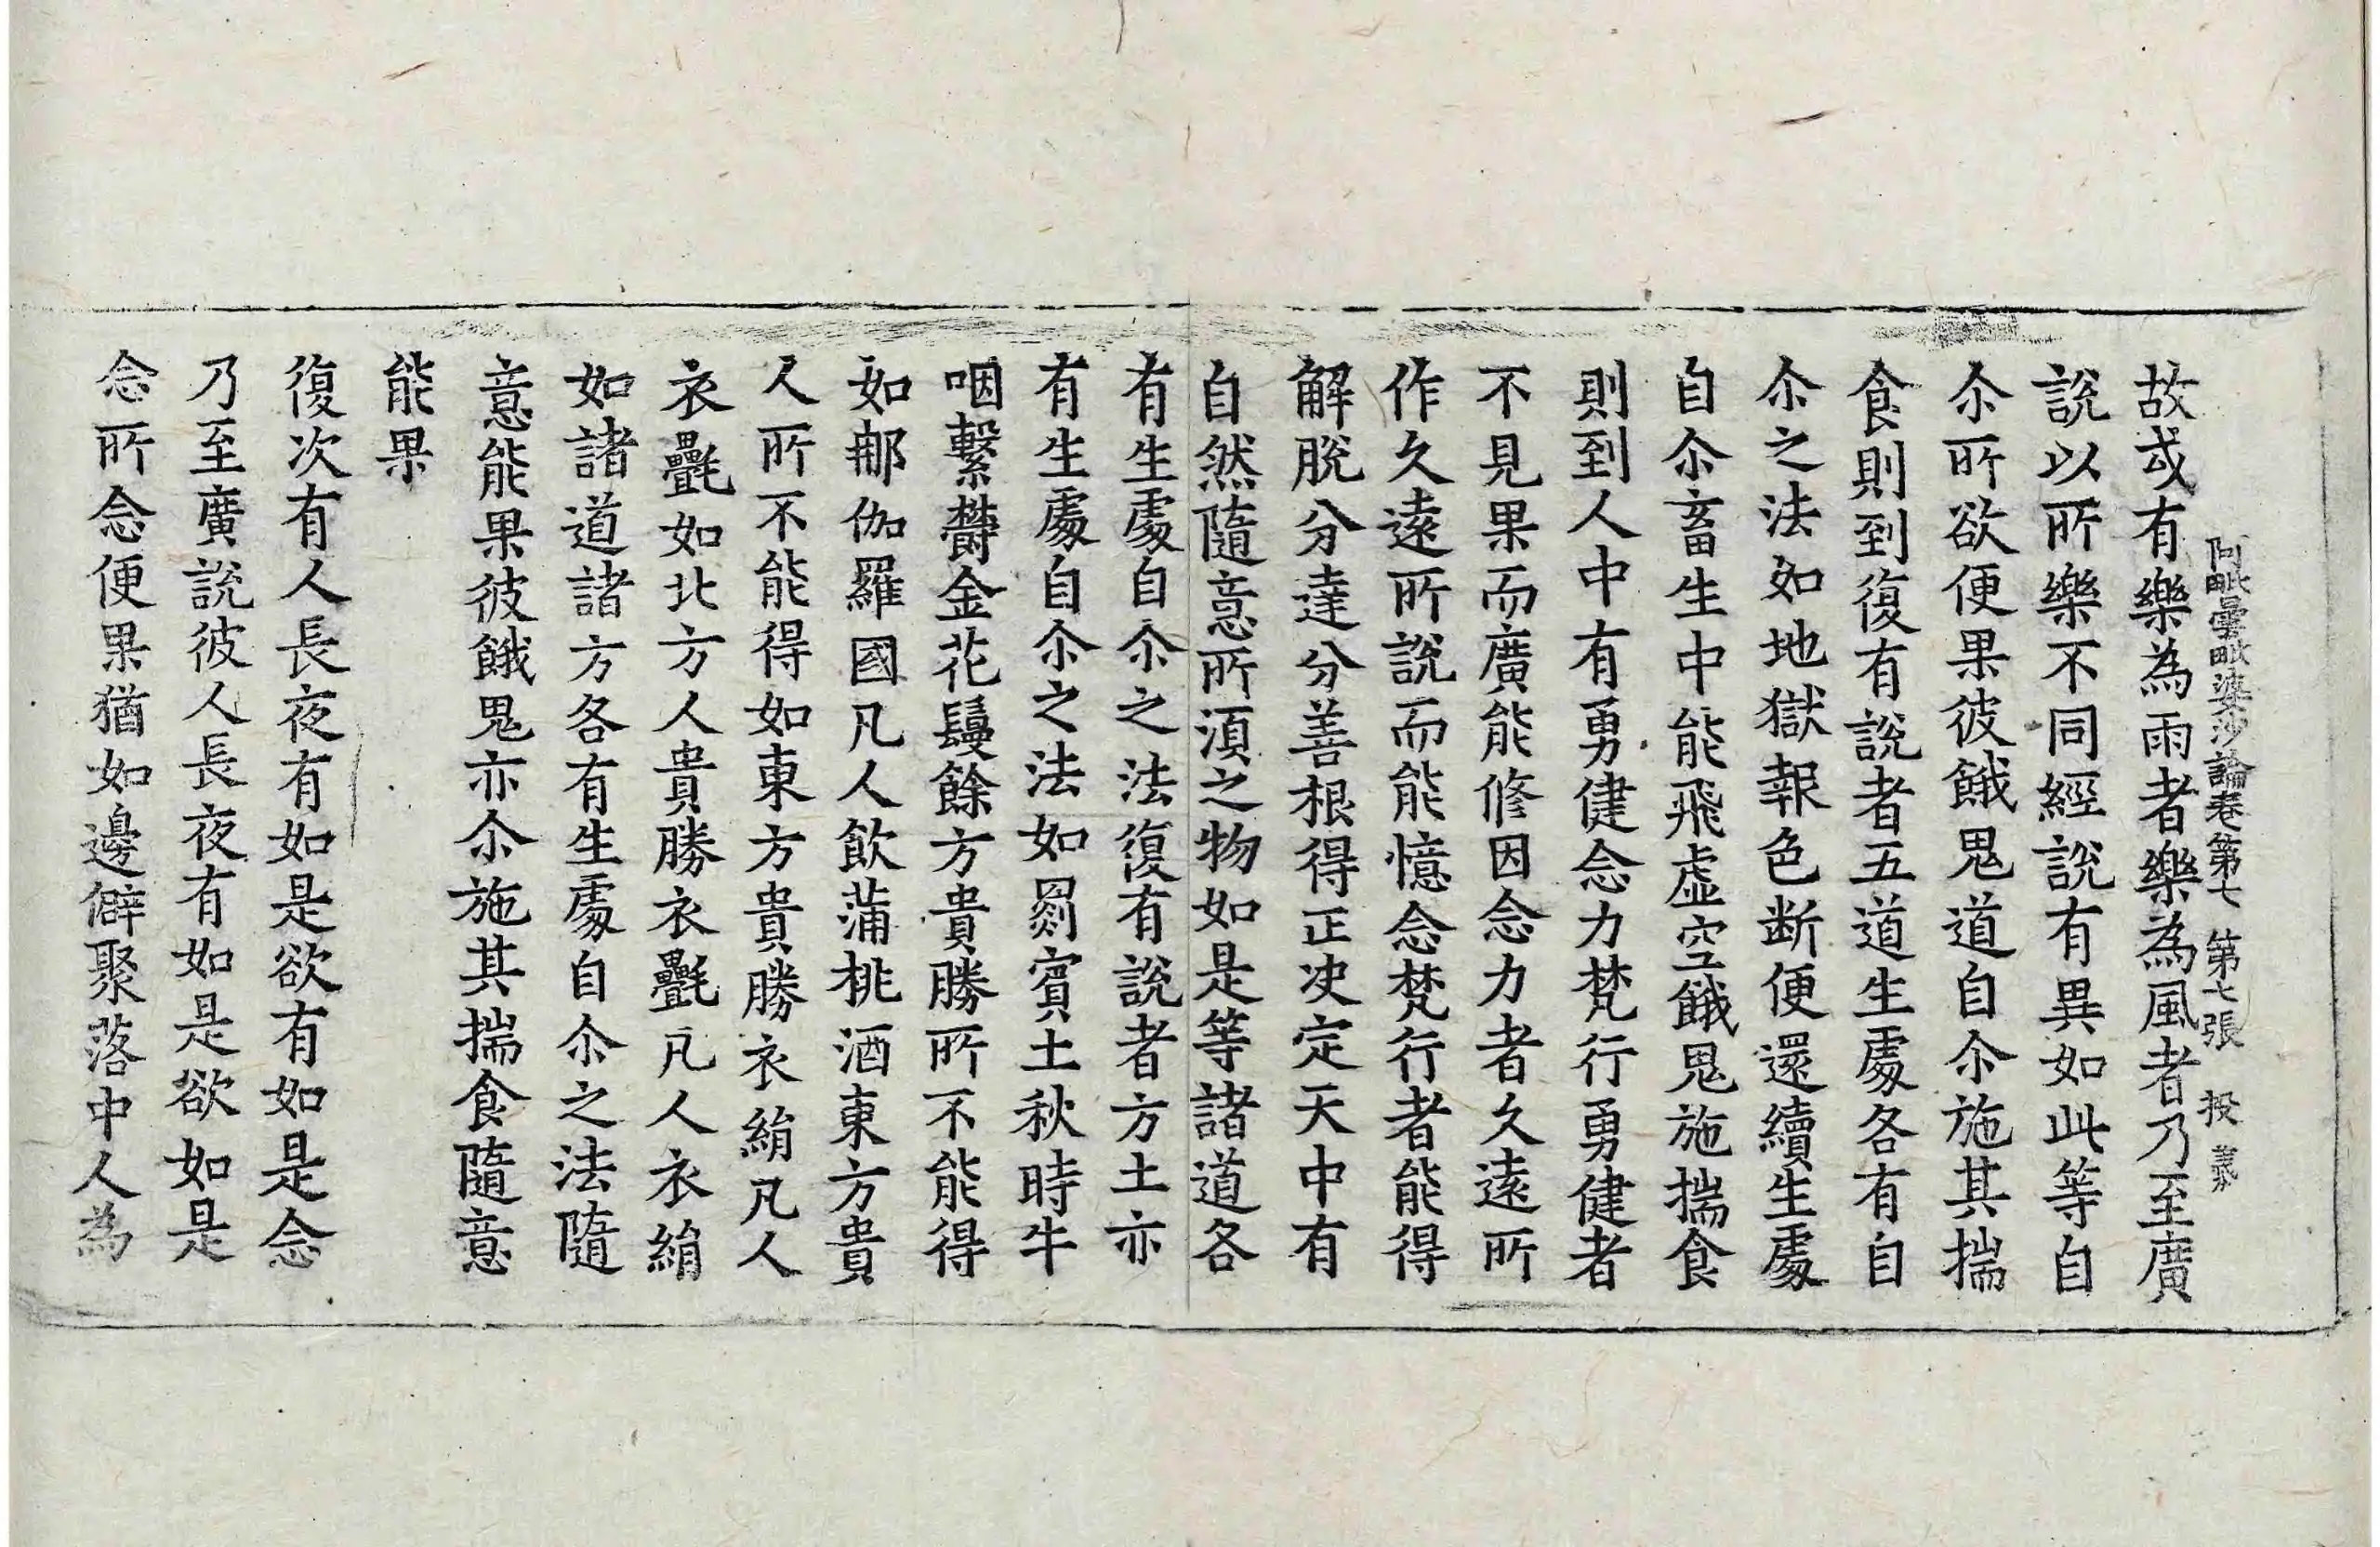 阿毗曇毗婆沙論卷第七 第七張 投
故或有樂為雨者樂為風者乃至廣
說以所樂不同經說有異如此等自
尒所欲便果彼餓鬼道自尒施其揣
食則到復有說者五道生處各有自
尒之法如地獄報色断便還續生處
自尒畜生中能飛虛空餓鬼施揣食
則到人中有勇健念力梵行勇健者
不見果而廣能修因念力者久遠所
作久遠所說而能憶念梵行者能得
解脫分達分善根得正決定天中有
自然隨意所湏之物如是等諸道各
有生處自尒之法復有說者方土亦
有生處自尒之法如罽賓土秋時牛
咽繫欝金花鬘餘方貴勝所不能得
如那伽羅國凡人飲蒲桃酒東方貴
人所不能得如東方貴勝衣絹凡人
衣㲲如北方人貴勝衣㲲凡人衣絹
如諸道諸方各有生處自尒之法隨
意能果彼餓鬼亦尒施其揣食隨意
能果
復次有人長夜有如是欲有如是念
乃至廣說彼人長夜有如是欲如是
念所念便果猶如邊僻聚落中人為